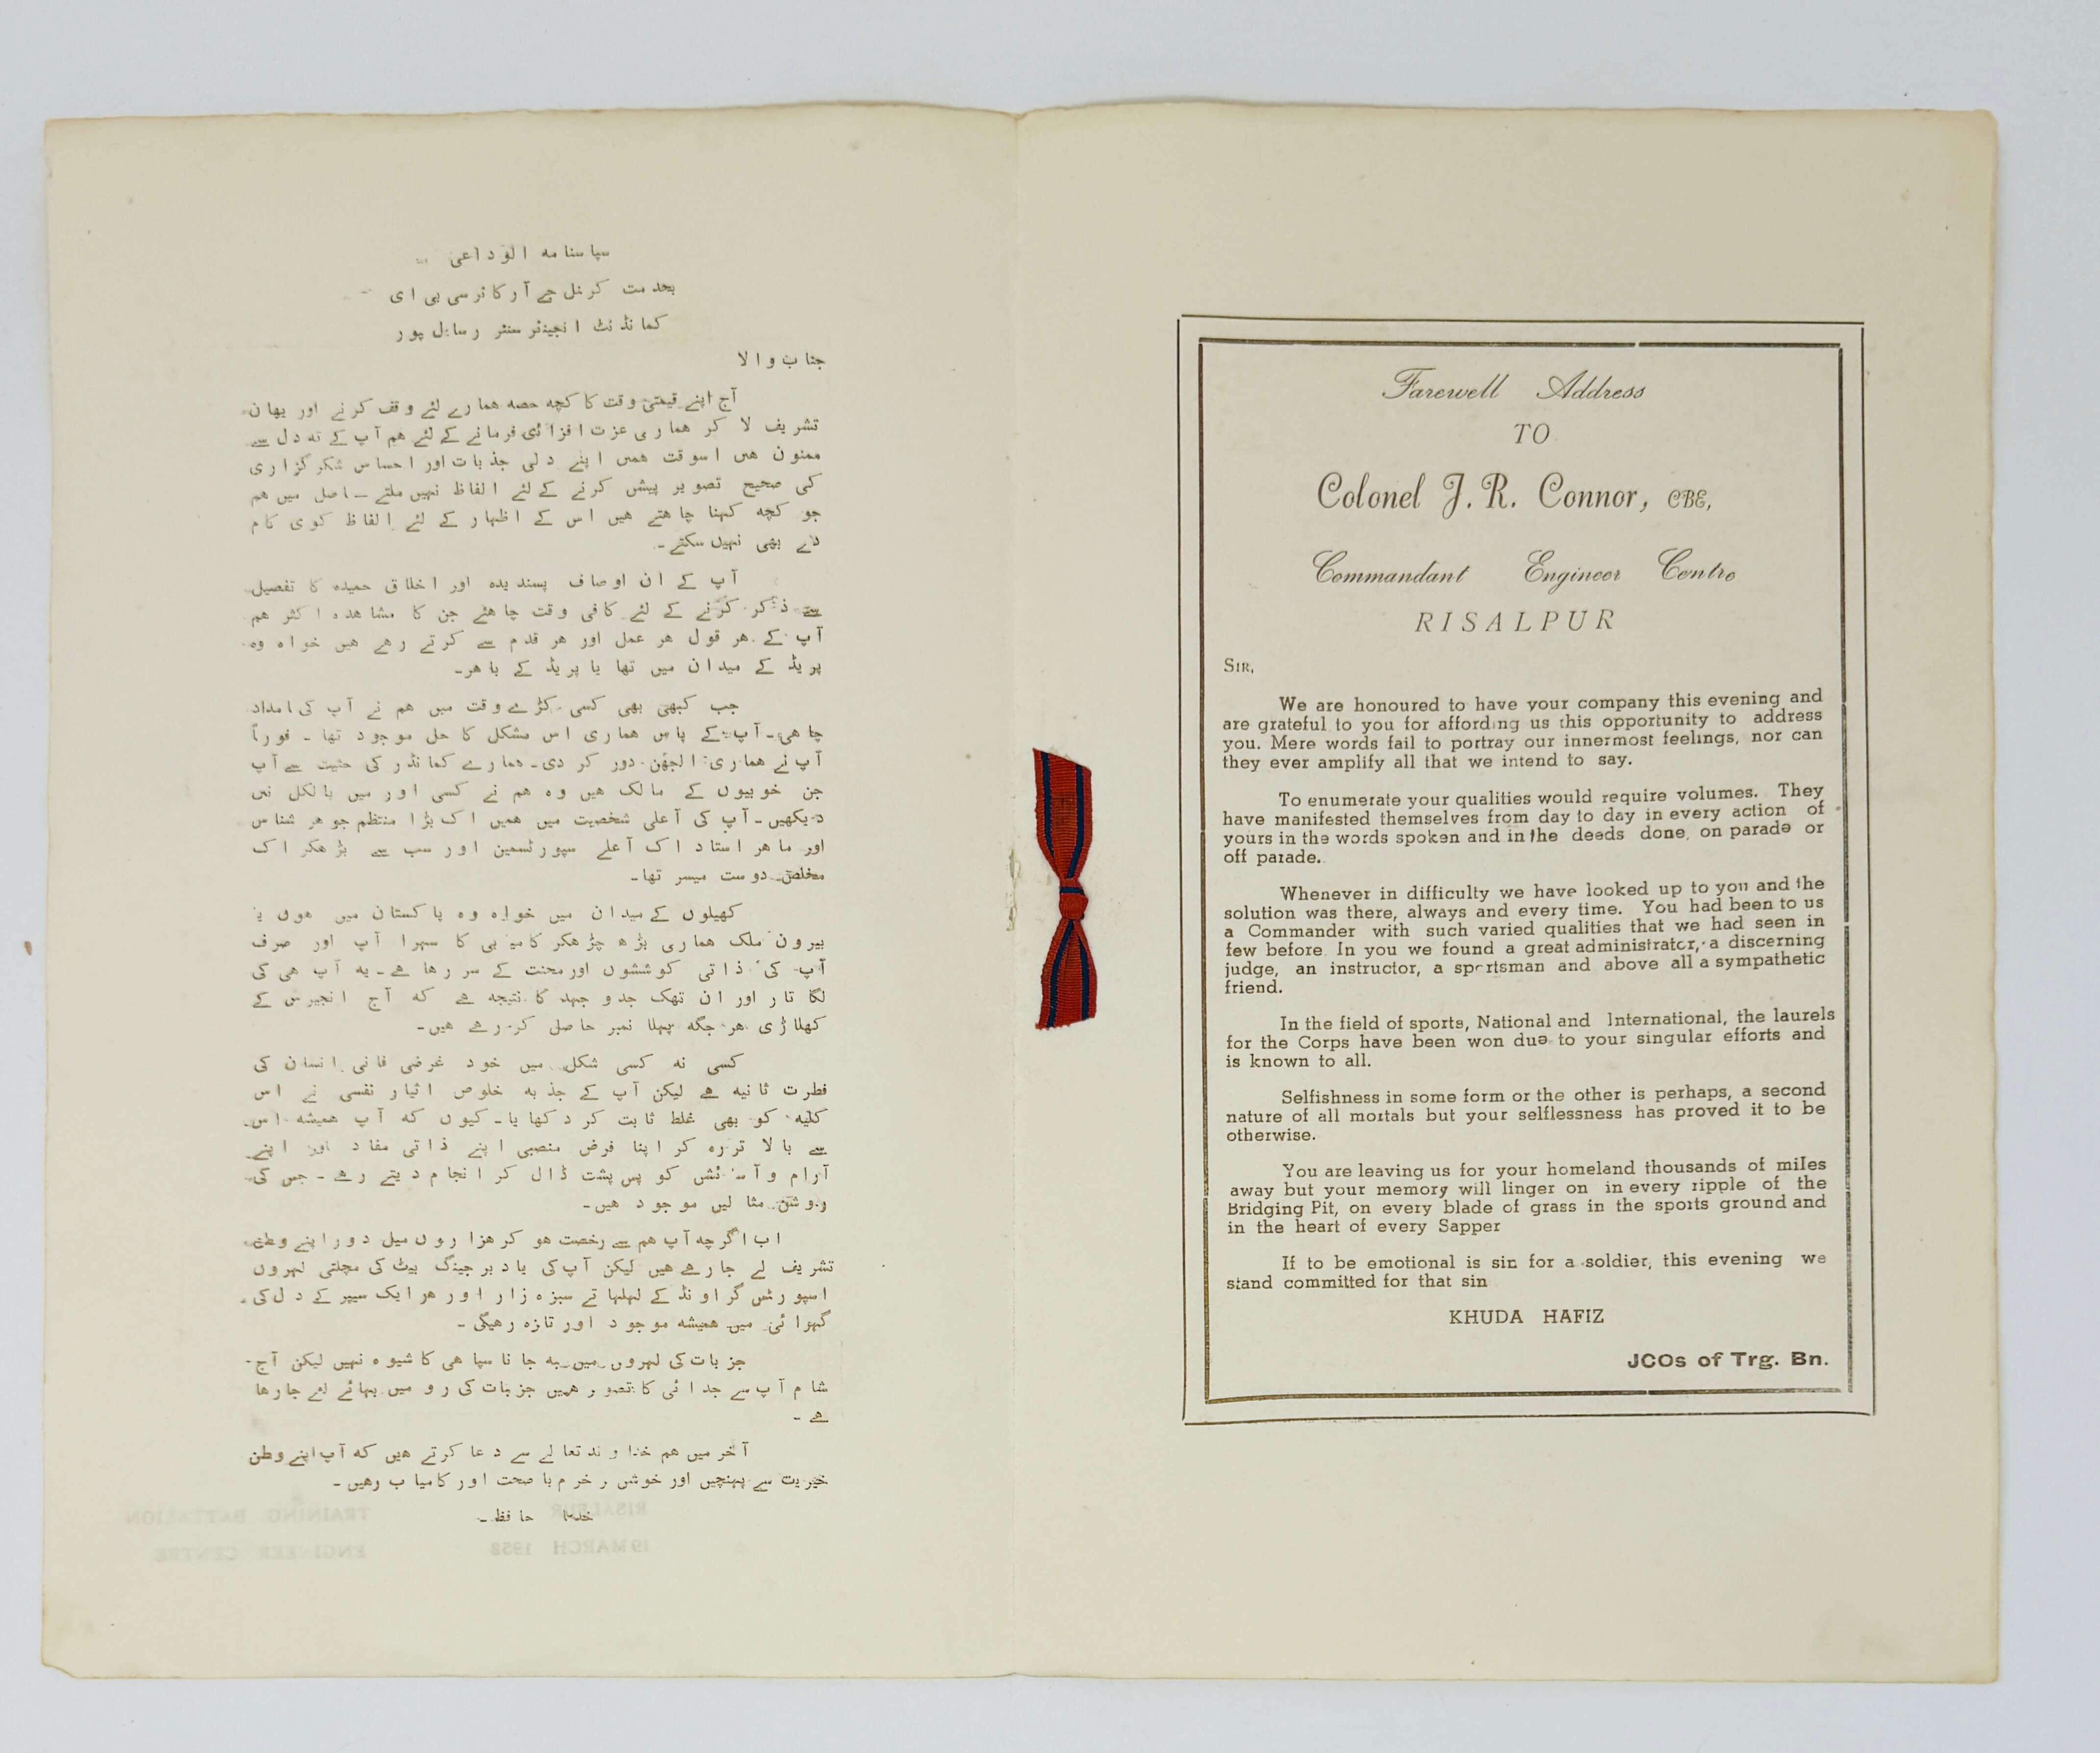 سپاسنامہ الوداعی
بخدمت کرنل جے آر کانر سی بی ای
کمانڈنٹ انجینئر سنٹر رسالپور
جناب والا
آج اپنے قیمتی وقت کا کچھ حصہ ہمارے لئے وقف کرنے اور یہاں
تشریف لا کر ہماری عزت افزائی فرمانے کے لئے ہم آپ کے تہ دل سے
ممنون ہیں اسوقت ہمیں اپنے دلی جذبات اور احساس شکر گزاری
کی صحیح تصویر پیش کرنے کے لئے الفاظ نہیں ملتے ـ اصل میں ہم
جو کچھ کہنا چاہتے ہیں اس کے اظہار کے لئے الفاظ کوی کام
دے بھی نہیں سکتے ـ
آپ کے ان اوصاف پسندیدہ اور اخلاق حمیدہ کا تفصیل
سے ذکر کرنے کے لئے کافی وقت چاہئے جن کا مشاہدہ اکثر ہم
آپ کے ہر قول ہر عمل اور ہر قدم سے کرتے رہے ہیں خواہ وہ
پریڈ کے میدان میں تھا یا پریڈ کے باہر ـ
جب کبھی بھی کسی کڑے وقت میں ہم نے آپ کی امداد
چاہی ـ آپ کے پاس ہماری اس مشکل کا حل موجود تھا ـ فوراً
آپ نے ہماری الجھن دور کر دی ـ ہمارے کمانڈر کی حثیت سے آپ
جن خوبیوں کے مالک ہیں وہ ہم نے کسی اور میں بالکل نہیں
دیکھیں ـ آپ کی آعلی شخصیت میں ہمیں اک بڑا منتظم جوہر شناس
اور ماہر استاد اک آعلے سپورٹسمین اور سب سے بڑھکر اک
مخلص دوست میسر تھا ـ
کھیلوں کے میدان میں خواہ وہ پاکستان میں ہوں یا
بیرون ملک ہماری بڑھ چڑھکر کامیابی کا سہرا آپ اور صرف
آپ کی ذاتی کوششوں اور محنت کے سر رہا ہے ـ یہ آپ ہی کی
لگا تار اور ان تھک جدو جہد کا نتیجہ ہے کہ آج انجیرس کے
کھلاڑی ہر جگہ پہلا نمبر حاصل کر رہے ہیں ـ
کسی نہ کسی شکل میں خود غرضی فانی انسان کی
فطرت ثانیہ ہے لیکن آپ کے جذبہ خلوص اثیار نفسی نے اس
کلیہ کو بھی غلط ثابت کر دکھایا ـ کیوں کہ آپ ہمیشہ اس
سے بالا تر رہ کر اپنا فرض منصبی اپنے ذاتی مفاد اور اپنے
آرام و آسائش کو پس پشت ڈال کر انجام دیتے رہے ـ جس کی
روشن مثالیں موجود ہیں ـ
اب اگرچہ آپ ہم سے رخصت ہو کر ہزاروں میل دور اپنے وطن
تشریف لے جا رہے ہیں لیکن آپ کی یاد برجینگ پیٹ کی مچلتی لہروں
اسپورٹس گراونڈ کے لہلہاتے سبزہ زار اور ہر ایک سیپر کے دل کی
گہرائی میں ہمیشہ موجود اور تازہ رہیگی ـ
جزبات کی لہروں میں بہ جانا سپاہی کا شیوہ نہیں لیکن آج
شام آپ سے جدائی کا تصور ہمیں جزبات کی رو میں بہائے لئے جا رہا
ہے ـ
آخر میں ہم خداوند تعالے سے دعا کرتے ہیں کہ آپ اپنے وطن
خیریت سے پہنچیں اور خوش و خرم با صحت اور کامیاب رہیں ـ
خدا حافظ ـ
Farewell Address
TO
Colonel J. R. Connor, CBE,
Commandant Engineer Centre
RISALPUR
SIR,
We are honoured to have your company this evening and
are grateful to you for affording us this opportunity to address
you. Mere words fail to portray our innermost feelings, nor can
they ever amplify all that we intend to say.
To enumerate your qualities would require volumes. They
have manifested themselves from day to day in every action of
yours in the words spoken and in the deeds done, on parade or
off parade.
Whenever in difficulty we have looked up to you and the
solution was there, always and every time. You had been to us
a Commander with such varied qualities that we had seen in
few before. In you we found a great administrator, a discerning
judge, an instructor, a sportsman and above all a sympathetic
friend.
In the field of sports, National and International, the laurels
for the Corps have been won due to your singular efforts and
is known to all.
Selfishness in some form or the other is perhaps, a second
nature of all mortals but your selflessness has proved it to be
otherwise.
You are leaving us for your homeland thousands of miles
away but your memory will linger on in every ripple of the
Bridging Pit, on every blade of grass in the sports ground and
in the heart of every Sapper
If to be emotional is sin for a soldier, this evening we
stand committed for that sin
KHUDA HAFIZ
JCOs of Trg. Bn.
RISALPUR TRAINING BATTALION
19 MARCH 1958 ENGINEER CENTRE